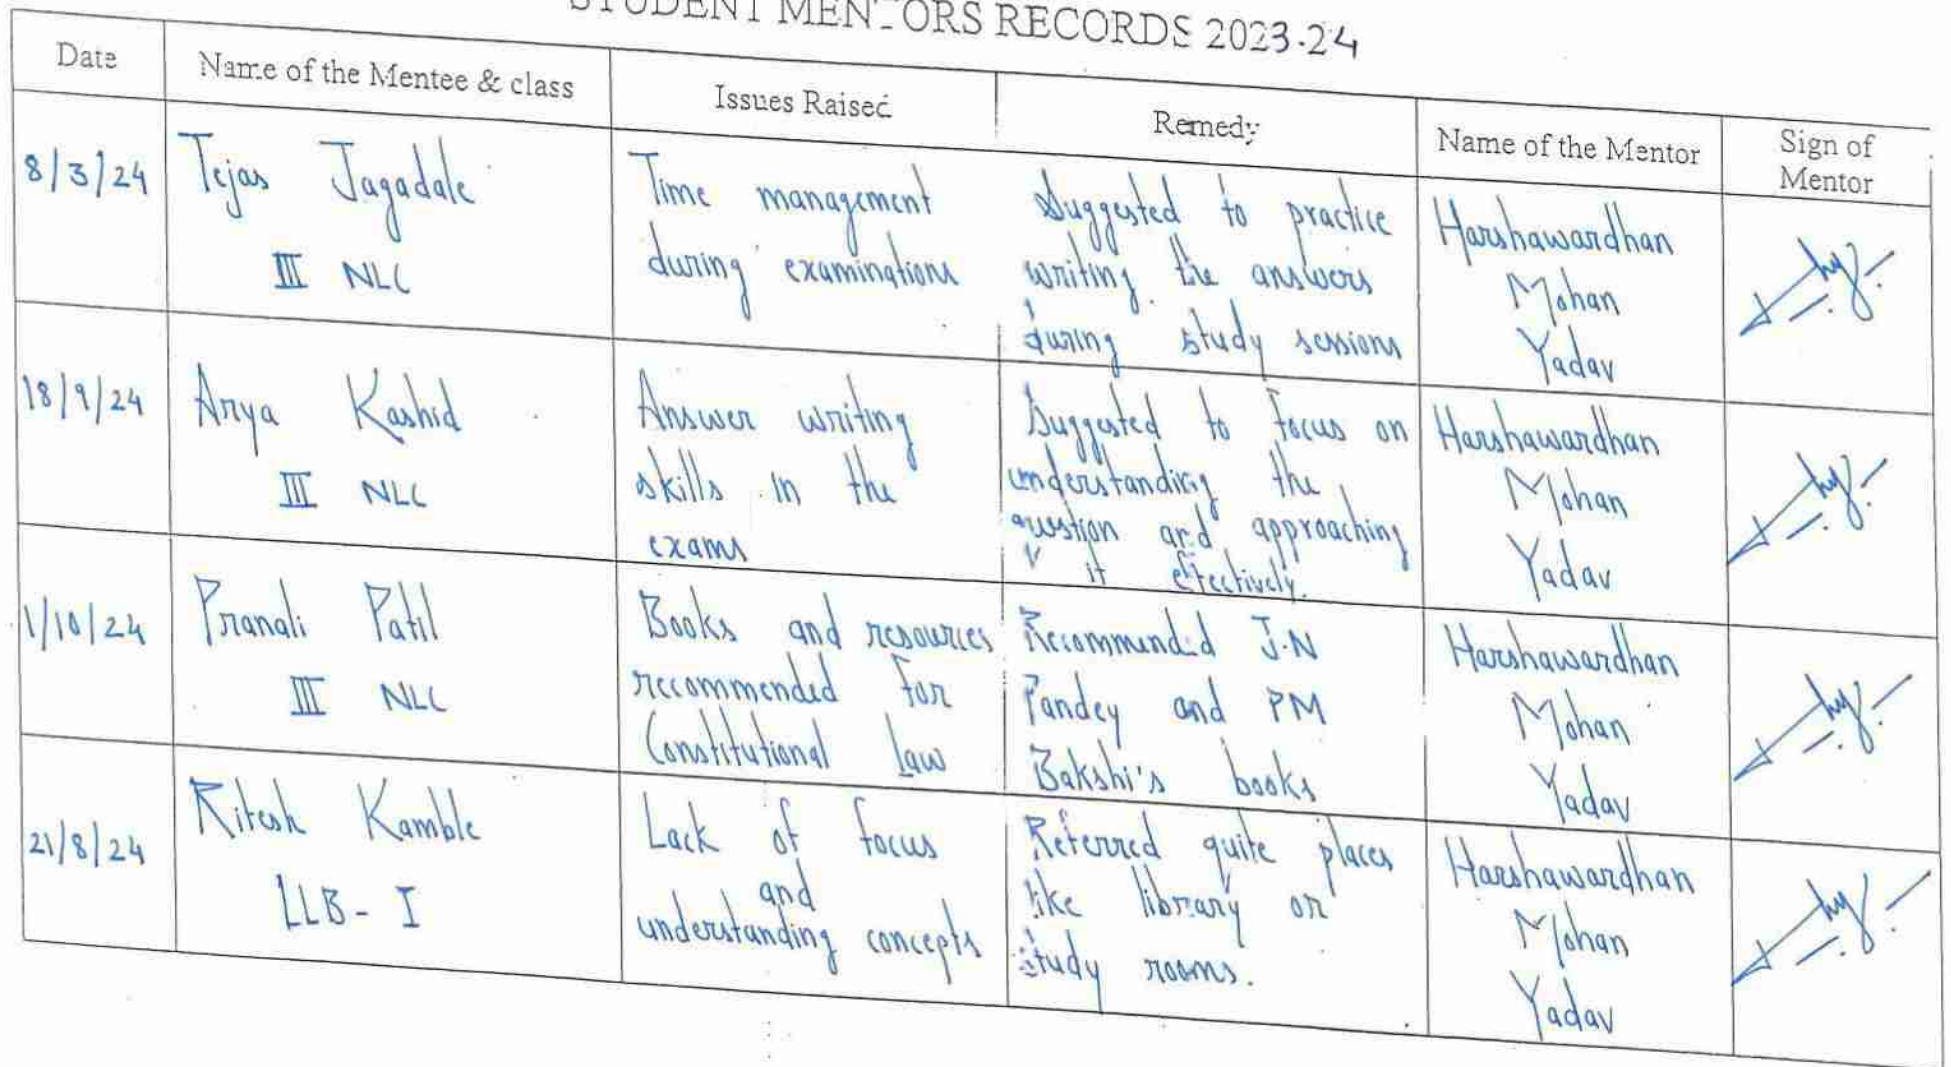 STUDENT MENTORS RECORDS 2023-24
Date
Name of the Mentee & class
Issues Raised
Remedy
Name of the Mentor
Sign of
Mentor
8/3/24
Tejas Jagadale
III NLC
Time management
during examinations
Suggested to practice
writing the answers
during study sessions
Harshawardhan
Mohan
Yadav
18/9/24
Arya Kashid
III NLC
Answer writing
skills in the
exams
Suggested to focus on
understanding the
question and approaching
it effectively.
Harshawardhan
Mohan
Yadav
1/10/24
Pranali Patil
III NLC
Books and resources
recommended for
Constitutional Law
Recommended J.N
Pandey and PM
Bakshi's books
Harshawardhan
Mohan
Yadav
21/8/24
Ritesh Kamble
LLB - I
Lack of focus
and
understanding concepts
Referred quite places
like library or
study rooms.
Harshawardhan
Mohan
Yadav